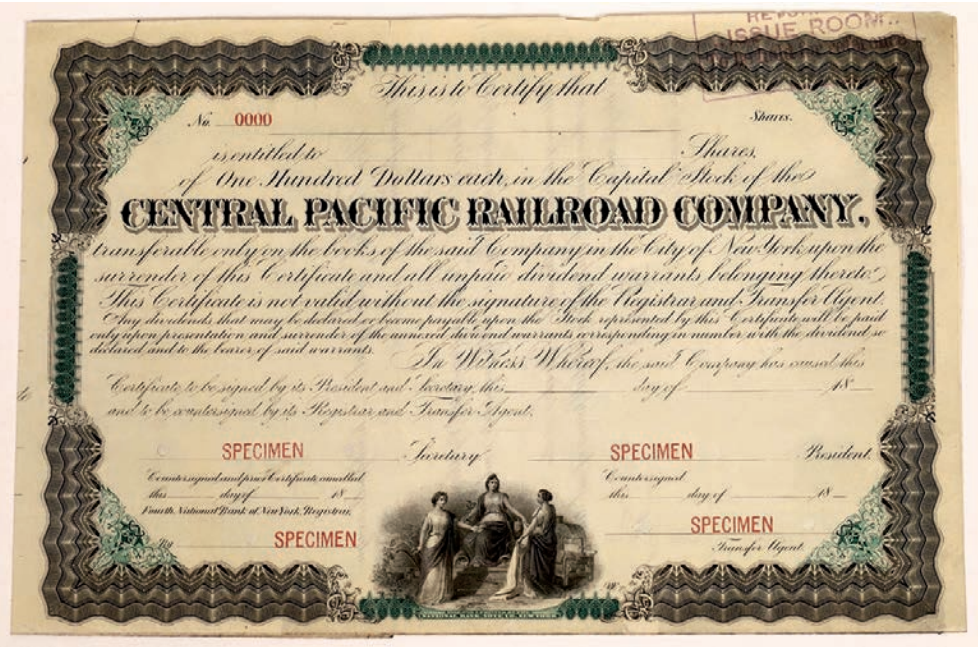 ISSUE ROOM
This is to Certify that
No. 0000 Shares.
is entitled to Shares,
of One Hundred Dollars each, in the Capital Stock of the
CENTRAL PACIFIC RAILROAD COMPANY,
transferable only on the books of the said Company in the City of New York upon the
surrender of this Certificate and all unpaid dividend warrants belonging thereto.
This Certificate is not valid without the signature of the Registrar and Transfer Agent.
Any dividends that may be declared or become payable upon the Stock represented by this Certificate will be paid
only upon presentation and surrender of the annexed dividend warrants corresponding in number with the dividend so
declared and to the bearer of said warrants.
In Witness Whereof, the said Company has caused this
Certificate to be signed by its President and Secretary, this day of 18
and to be countersigned by its Registrar and Transfer Agent.
SPECIMEN Secretary SPECIMEN President.
Countersigned and prior Certificate cancelled
this day of 18
Fourth National Bank of New York, Registrar,
By SPECIMEN
Countersigned
this day of 18
SPECIMEN
Transfer Agent.
NATIONAL BANK NOTE CO. NEW YORK